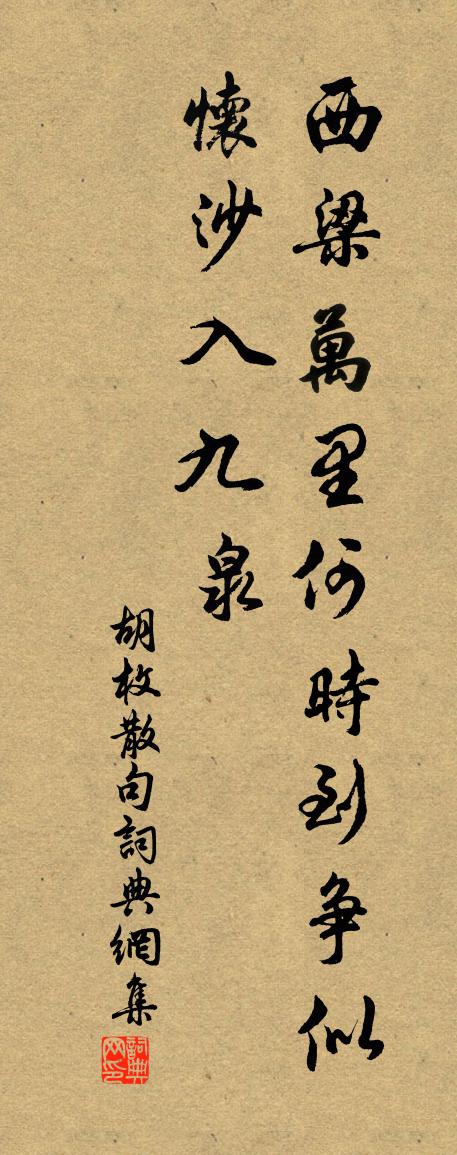 西梁萬里何時到争似
懷沙入九泉
胡枚散句詞典網集
詞典網印